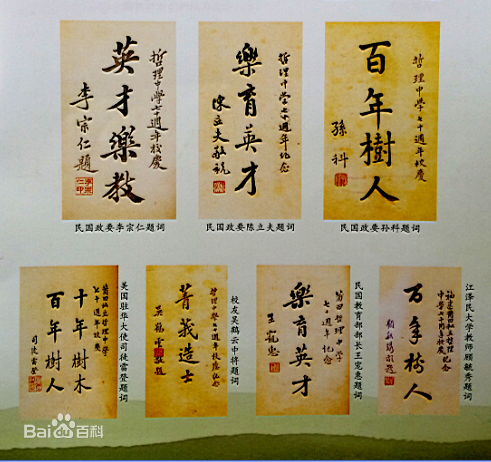 哲理中學七十週年校慶
英才樂教
李宗仁題
民国政要李宗仁题词
哲理中学七十週年纪念
樂育英才
陳立夫敬祝
民国政要陈立夫题词
哲理中學七十週年校慶
百年樹人
孫科
民国政要孙科题词
莆田私立哲理中學
七十週年校慶
十年樹木
百年樹人
司徒雷登
美国驻华大使司徒雷登题词
菁莪造士
吳鶴雲敬題
校友吴鹤云中将题词
莆田哲理中学
七十週年纪念
樂育英才
王寵惠
民国教育部部长王宠惠题词
福建莆田私立哲理
中學七十周年校慶纪念
百年树人
顧毓琇敬題
江泽民大学教师顾毓琇题词
Bai百科